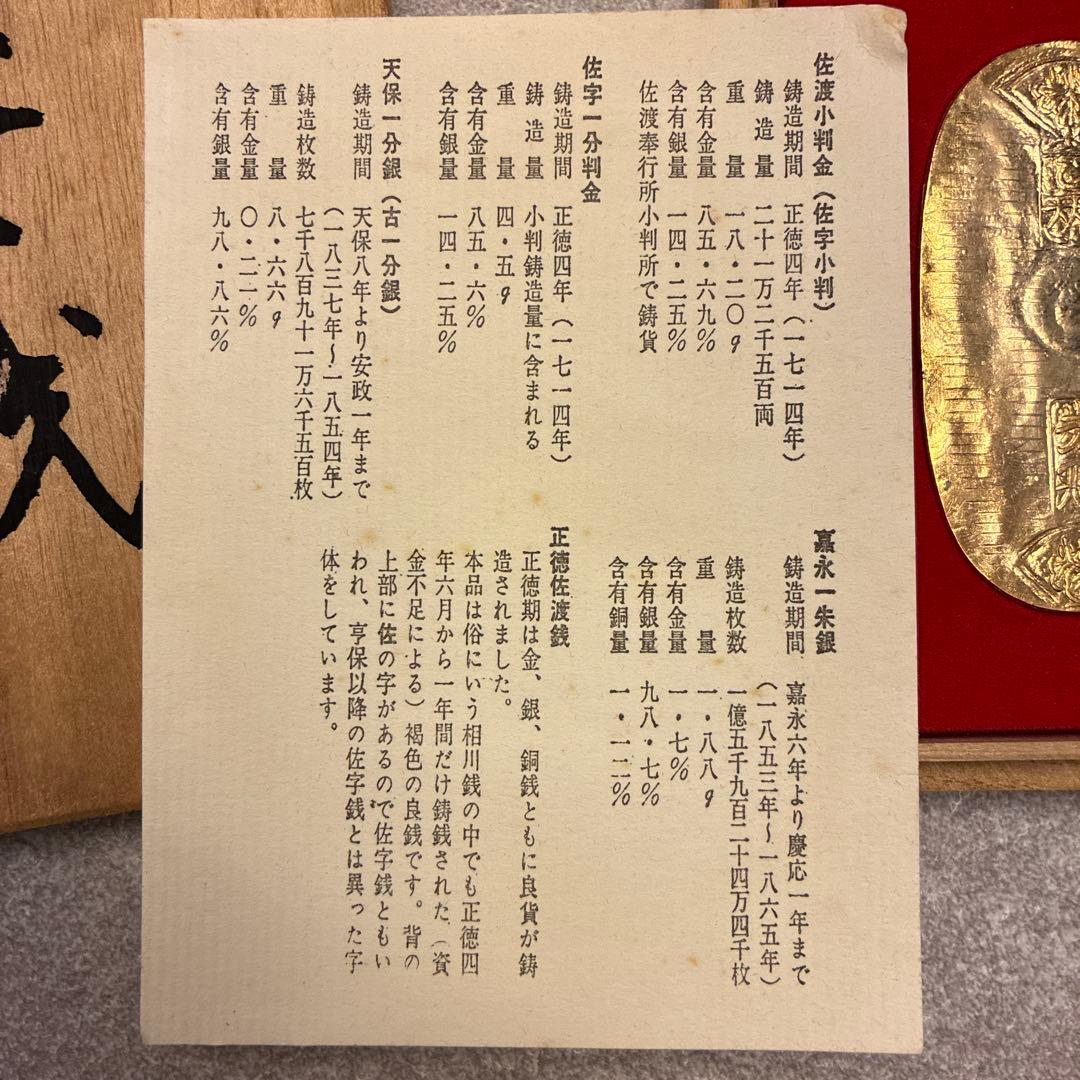 佐渡小判金（佐字小判）
鋳造期間　正徳四年（一七一四年）
鋳造量　二十一万二千五百両
重量　一八・二〇g
含有金量　八五・六九%
含有銀量　一四・二五%
佐渡奉行所小判所で鋳貨
佐字一分判金
鋳造期間　正徳四年（一七一四年）
鋳造量　小判鋳造量に含まれる
重量　四・五g
含有金量　八五・六%
含有銀量　一四・二五%
天保一分銀（古一分銀）
鋳造期間　天保八年より安政一年まで
（一八三七年〜一八五四年）
鋳造枚数　七千八百九十一万六千五百枚
重量　八・六六g
含有金量　〇・二一%
含有銀量　九八・八六%
嘉永一朱銀
鋳造期間　嘉永六年より慶応一年まで
（一八五三年〜一八六五年）
鋳造枚数　一億五千九百二十四万四千枚
重量　一・八八g
含有金量　一・七%
含有銀量　九八・七%
含有銅量　一・一二%
正徳佐渡銭
正徳期は金、銀、銅銭ともに良貨が鋳
造されました。
本品は俗にいう相川銭の中でも正徳四
年六月から一年間だけ鋳銭された（資
金不足による）褐色の良銭です。背の
上部に佐の字があるので佐字銭ともい
われ、亨保以降の佐字銭とは異った字
体をしています。